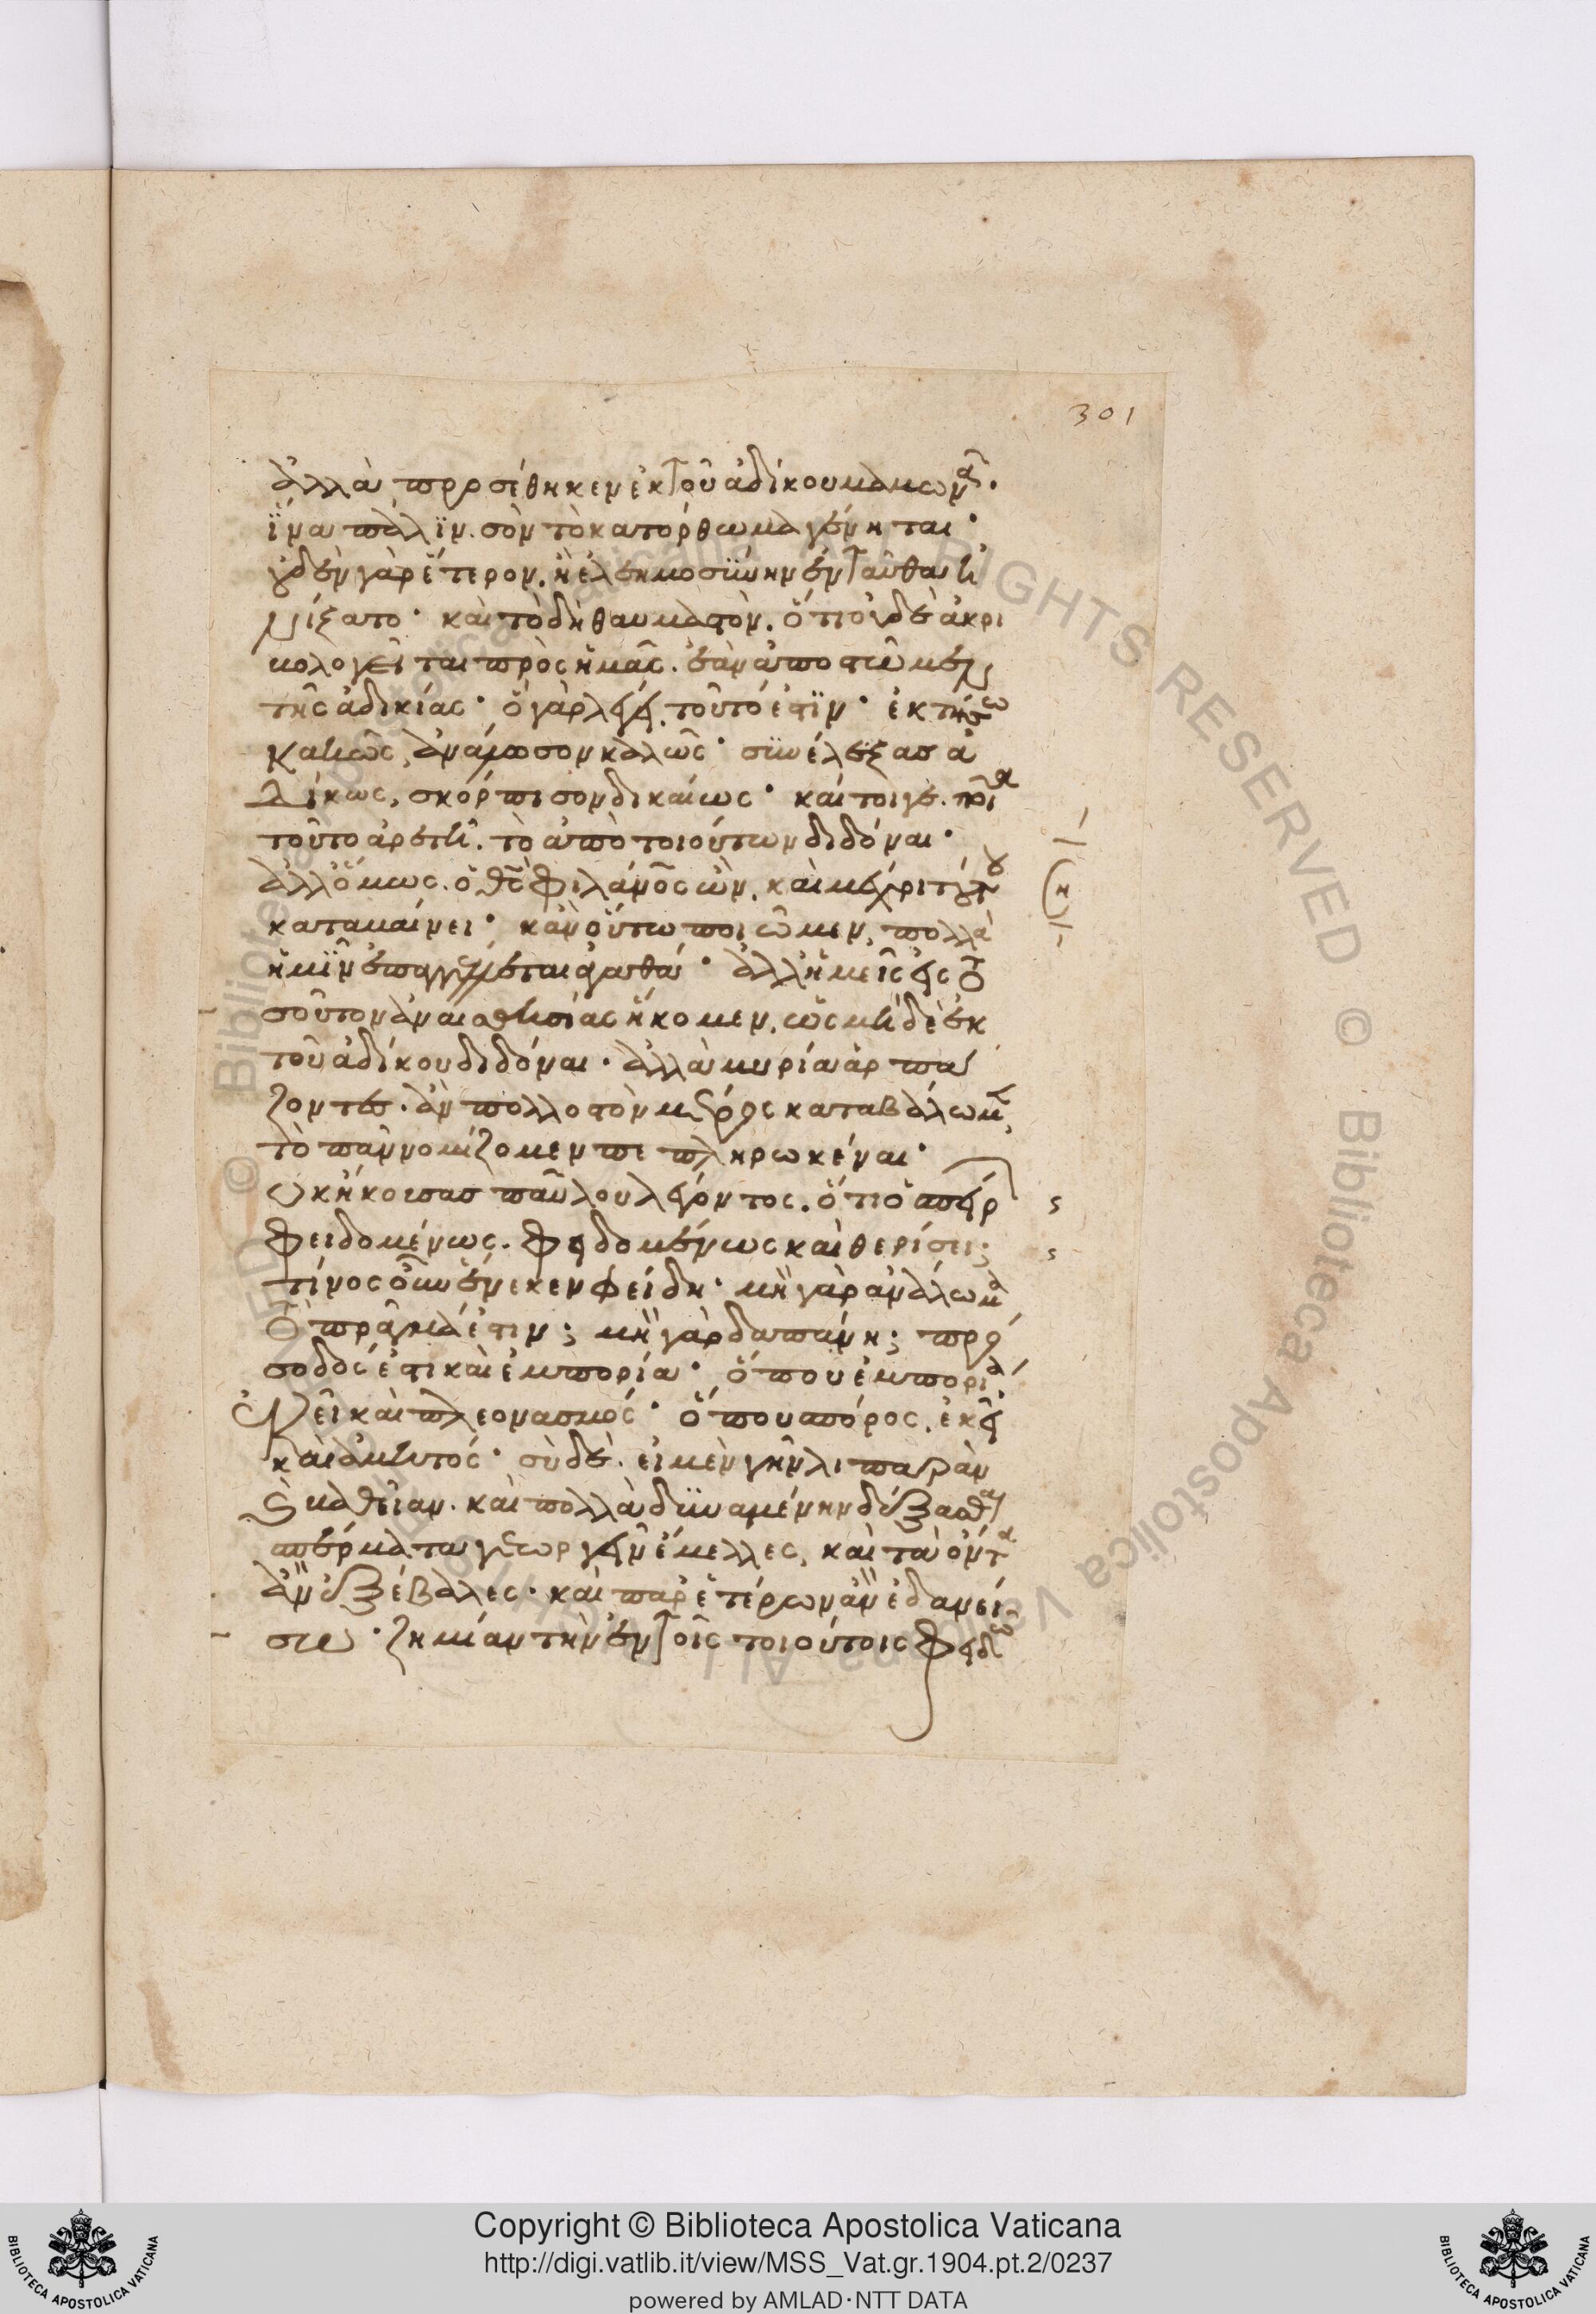 301
ἀλλὰ προσέθηκεν ἐκ τοῦ ἀδίκου μαμωνᾶ·
ἵνα πάλιν σὸν τὸ κατόρθωμα γένηται·
οὐδὲν γὰρ ἕτερον ἢ ἐλεημοσύνην ἐνταῦθα ᾐ
νίξατο· καὶ τὸ δὴ θαυμαστὸν, ὅτι οὐδὲ ἀκρι
βολογεῖται πρὸς ἡμᾶς, ἐὰν ἀποστῶμεν
τῆς ἀδικίας· ὃ γὰρ λέγει, τοῦτό ἐστιν· ἐκτήσω
κακῶς, ἀνάλωσον καλῶς· συνέλεξας ἀ
δίκως, σκόρπισον δικαίως· καίτοιγε ποία
τοῦτο ἀρετὴ, τὸ ἀπὸ τοιούτων διδόναι·
ἀλλ' ὅμως ὁ θ̅ς̅ φιλάνος ὢν, καὶ μέχρι τούτου
καταβαίνει· κἂν οὕτω ποιῶμεν, πολλὰ
ἡμῖν ἐπαγγέλλεται ἀγαθά· ἀλλ' ἡμεῖς εἰς το
σοῦτον ἀναισθησίας ἥκομεν, ὡς μὴ δὲ ἐκ
τοῦ ἀδίκου διδόναι· ἀλλὰ μυρία ἁρπά
ζοντες, ἂν πολλοστὸν μέρος καταβάλωμεν,
τὸ πᾶν νομίζομεν πεπληρωκέναι·
Οὐκ ἤκουσας παύλου λέγοντος, ὅτι ὁ σπείρων
φειδομένως, φειδομένως καὶ θερίσει;
τίνος οὖν ἕνεκεν φείδῃ· μὴ γὰρ ἀνάλωμα
τὸ πρᾶγμά ἐστιν; μὴ γὰρ δαπάνη; πρό
σοδός ἐστι καὶ ἐμπορία· ὅπου ἐμπορία,
ἐκεῖ καὶ πλεονασμός· ὅπου σπόρος, ἐκεῖ
καὶ ἀμητός· σὺ δὲ, εἰ μὲν γῆν λιπαρὰν
καὶ βαθεῖαν, καὶ πολλὰ δυναμένην δέξασθαι
σπέρματα γεωργεῖν ἔμελλες, καὶ τὰ ὄντα
ἂν ἐξέβαλες· καὶ παρ' ἑτέρων ἂν ἐδανεί
σω· ζημίαν τὴν ἐν τοῖς τοιούτοις φειδὼ